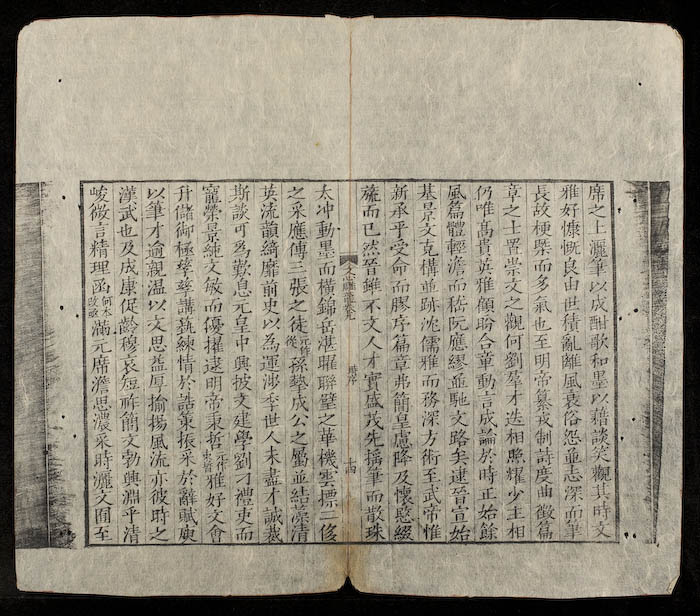 席之上灑筆以成酣歌和墨以藉談笑觀其時文
雅好慷慨良由世積亂離風衰俗怨並志深而筆
長故梗槩而多氣也至明帝纂戎制詩度曲徵篇
章之士置崇文之觀何劉羣才迭相照耀少主相
仍唯高貴英雅顧盼合章動言成論於時正始餘
風篇體輕澹而嵇阮應繆並馳文路矣逮晉宣始
基景文克構並跡沈儒雅而務深方術至武帝惟
新承乎受命而膠序篇章弗簡皇慮降及懷愍綴
旒而已然晉雖不文人才實盛茂先搖筆而散珠
文心雕龍卷九
時序
十四
太冲動墨而橫錦岳湛曜聯璧之華機雲標二俊
之采應傅三張之徒元作從孫摯成公之屬並結藻清
英流韻綺靡前史以為運涉季世人未盡才誠哉
斯談可為歎息元皇中興披文建學劉刁禮吏而
寵榮景純文敏而優擢逮明帝秉哲元作雅好文會
升儲御極孳孳講藝練情於誥策振采於辭賦庾
以筆才逾親温以文思益厚揄揚風流亦彼時之
漢武也及成康促齡穆哀短祚簡文勃興淵乎清
峻微言精理函何本改亟滿元席澹思濃采時灑文囿至